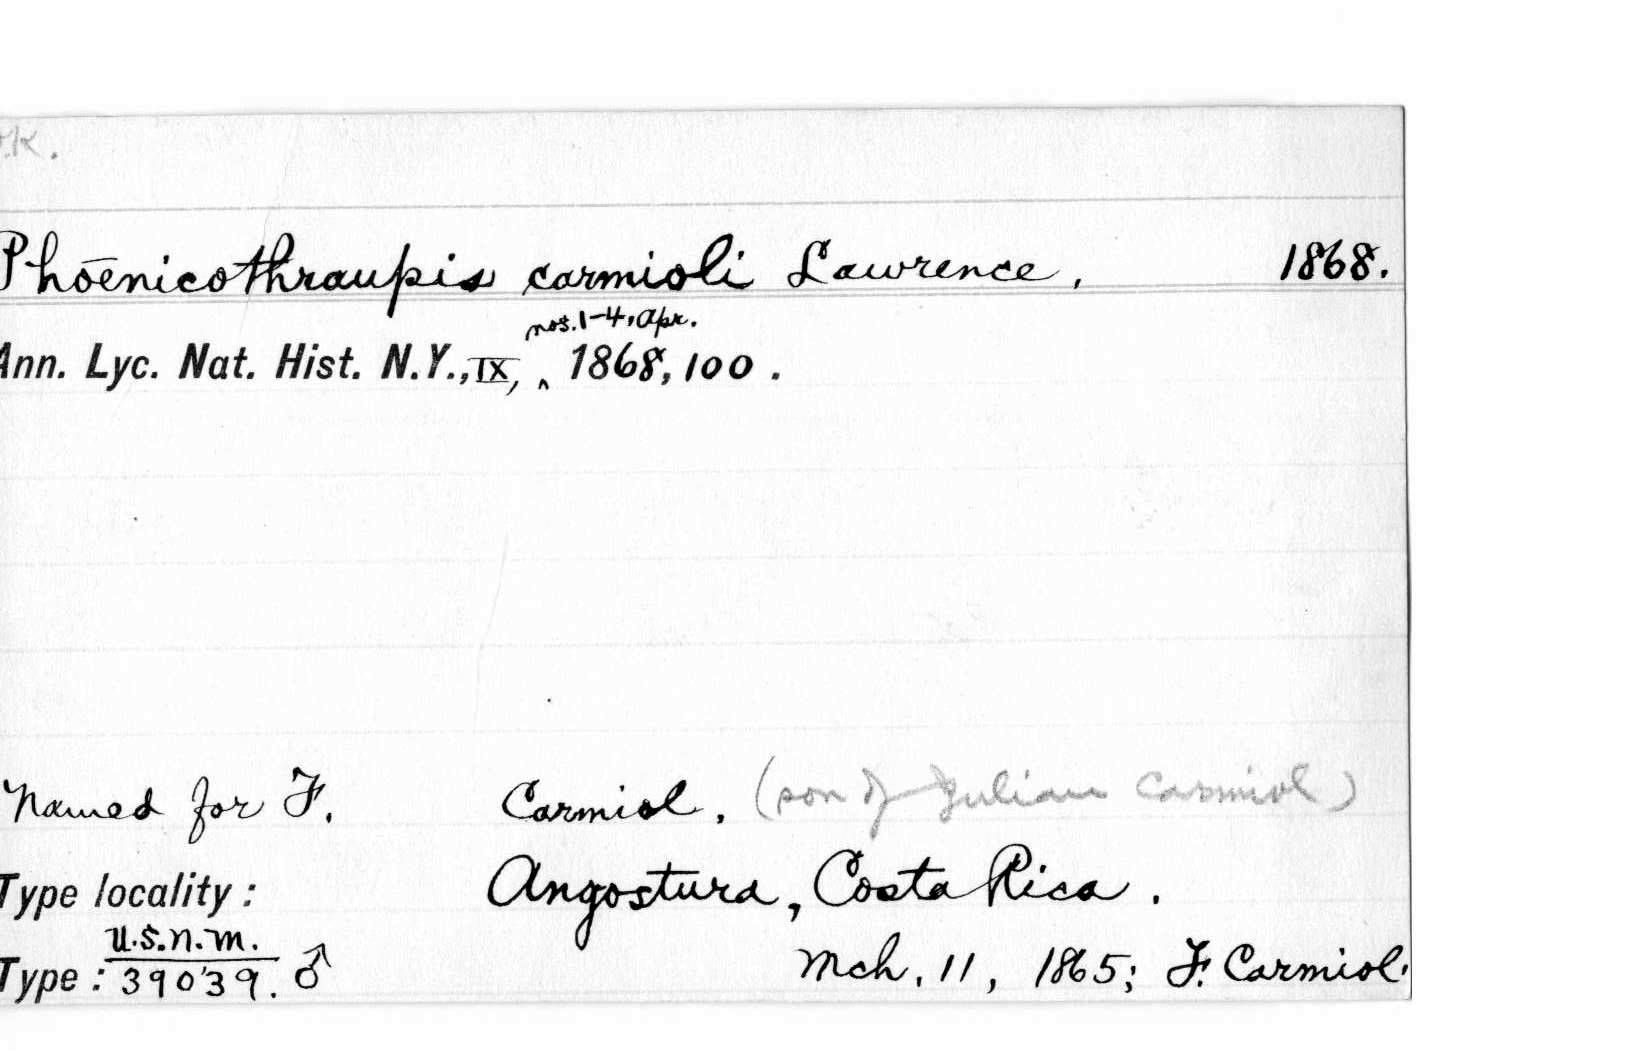 O.K.
Phoēnicothraupis carmioli Lawrence, 1868.
nos. 1-4, Apr.
Ann. Lyc. Nat. Hist. N.Y., IX, ^ 1868, 100.
Named for F. Carmiol. (son of Julian Carmiol)
Type locality: Angostura, Costa Rica.
U.S.N.M.
Type: 39039. ♂ Mch. 11, 1865; F. Carmiol.